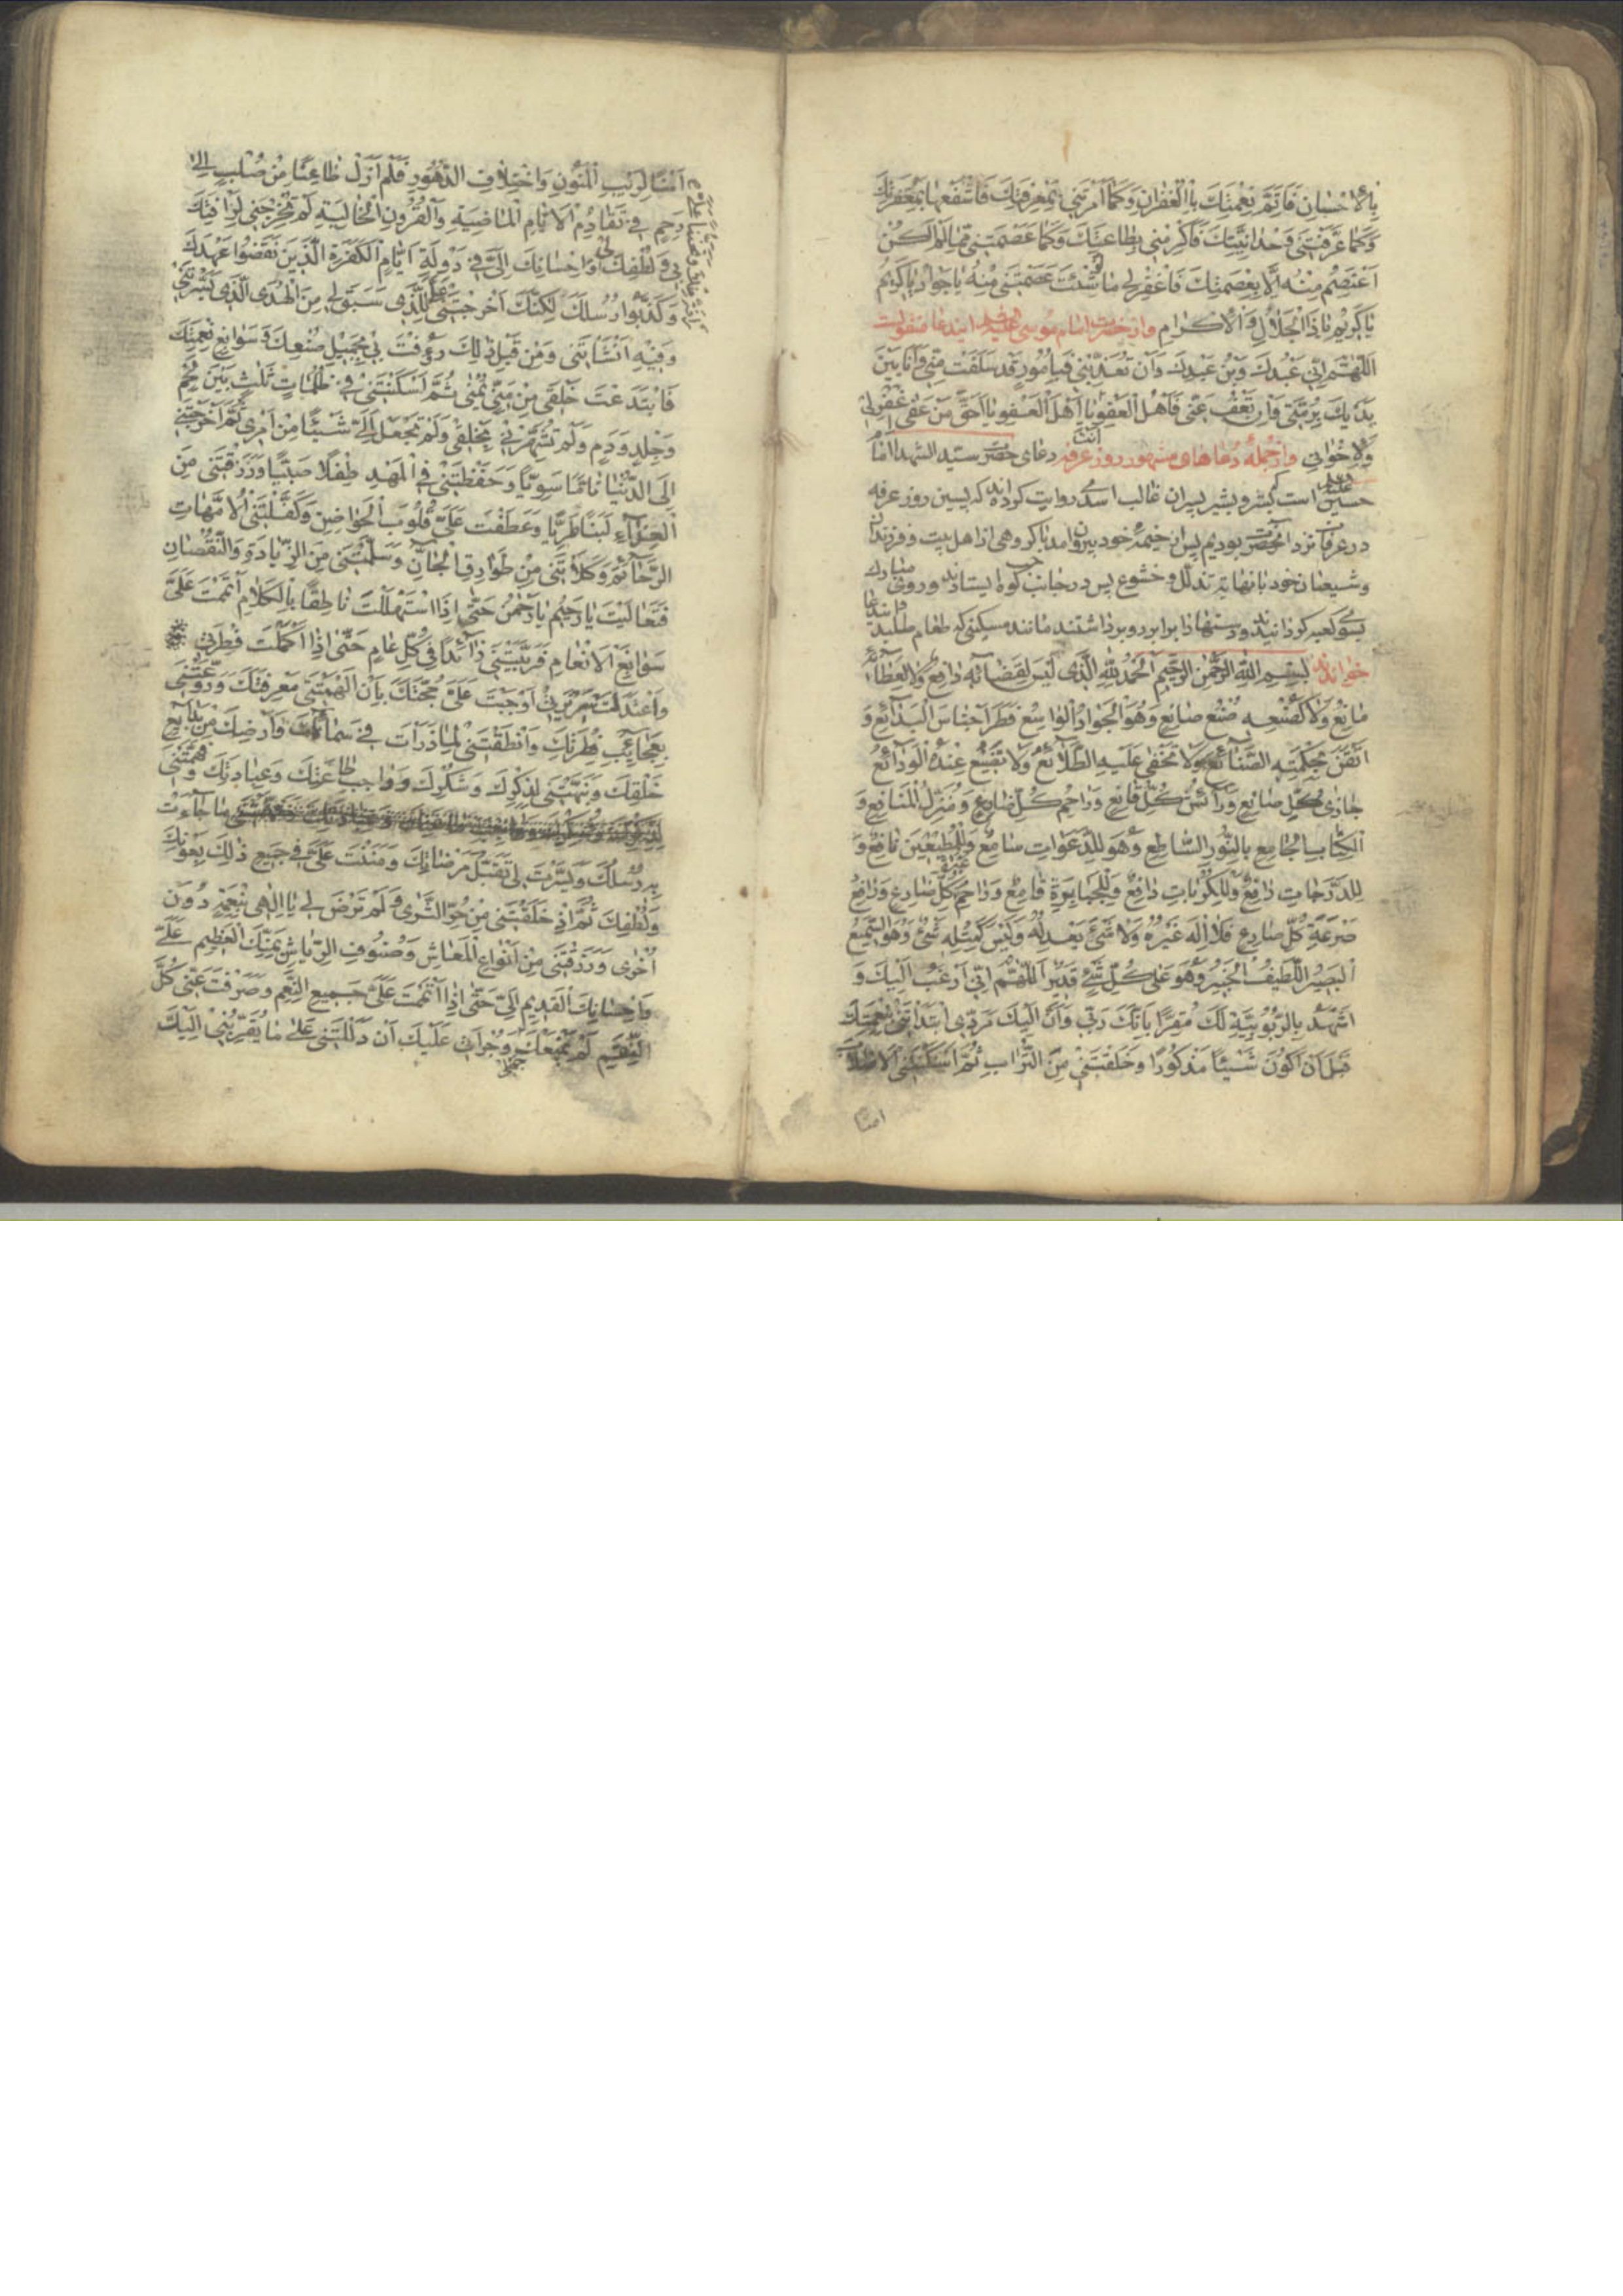 بِالْاِحْسٰانِ فَاَتِمَّ نِعْمَتَكَ بِالْغُفْرٰانِ وَكَمٰا اَمَرْتَنى بِمَعْرِفَتِكَ فَاشْفَعْهٰا بِمَغْفِرَتِكَ
وَكَمٰا عَرَّفْتَنى وَحْدٰانِيَّتَكَ فَاَكْرِمْنى بِطٰاعَتِكَ وَكَمٰا عَصَمْتَنى مِمّٰا لَمْ اَكُنْ
اَعْتَصِمُ مِنْهُ اِلّٰا بِعِصْمَتِكَ فَاغْفِرْلى مٰا لَوْ شِئْتَ عَصَمْتَنى مِنْهُ يٰا جَوٰادُ يٰا كَريمُ
يٰا كَريمُ يٰا ذَا الْجَلٰالِ وَالْاِكْرٰامِ واز حضرت امام موسى عليه السلم ايندعا منقولست
اَللّٰهُمَّ اِنّى عَبْدُكَ وَبْنُ عَبْدِكَ وَاِنْ تُعَذِّبْنى فَبِاُمُورٍ قَدْ سَلَفَتْ مِنّى وَاَنَا بَيْنَ
يَدَيْكَ بِرُمَّتى وَاِنْ تَعْفُ عَنّى فَاَهْلُ الْعَفْوِ اَنْتَ يٰا اَهْلَ الْعَفْوِ يٰا اَحَقَّ مَنْ عَفٰى اِغْفِرْلى
وَلِاِخْوٰانى وازجمله دعاهاى مشهور روز عرفه دعاى حضرت سيد الشهدا امام
حسين عليه السلم است كه بشر و بشير پسران غالب اسدى روايت كرده‌اند كه پسين روز عرفه
در عرفات نزد آنحضرت بوديم پس از خيمهٔ خود بيرون آمد با گروهى از اهل بيت و فرزندان
وشيعيان خود با نهايت تذلل و خشوع پس در جانب چپ كوه ايستادند و روى مبارك
بسوى كعبه گردانيدند و دستها را برابر رو برداشتند مانند مسكينى كه طعام طلبد و ايندعا
خواندند بِسْمِ اللّٰهِ الرَّحْمٰنِ الرَّحيمِ اَلْحَمْدُ لِلّٰهِ الَّذى لَيْسَ لِقَضٰائِه دٰافِعٌ وَلٰا لِعَطٰائِه
مٰانِعٌ وَلٰا كَصُنْعِه صُنْعُ صٰانِعٍ وَهُوَ الْجَوٰادُ الْوٰاسِعُ فَطَرَ اَجْنٰاسَ الْبَدٰائِعِ وَ
اَتْقَنَ بِحِكْمَتِه الصَّنٰائِعَ وَلٰا تَخْفٰى عَلَيْهِ الطَّلٰائِعُ وَلٰا تَضيعُ عِنْدَهُ الْوَدٰائِعُ
جٰازى كُلِّ صٰانِعٍ وَرٰائِشُ كُلِّ قٰانِعٍ وَرٰاحِمُ كُلِّ ضٰارِعٍ وَمُنْزِلُ الْمَنٰافِعِ وَ
الْكِتٰابِ الْجٰامِعِ بِالنُّورِ السّٰاطِعِ وَهُوَ لِلدَّعَوٰاتِ سٰامِعٌ وَلِلْمُطيعينَ نٰافِعٌ وَ
لِلدَّرَجٰاتِ رٰافِعٌ وَلِلْكُرُبٰاتِ دٰافِعٌ وَلِلْجَبٰابِرَةِ قٰامِعٌ وَرٰاحِمُ عَبْرَةِ كُلِّ ضٰارِعٍ وَدٰافِعُ
ضَرْعَةِ كُلِّ ضٰارِعٍ فَلٰا اِلٰهَ غَيْرُهُ وَلٰا شَىْءَ يَعْدِلُهُ وَلَيْسَ كَمِثْلِه شَىْءٌ وَهُوَ السَّميعُ
الْبَصيرُ اللَّطيفُ الْخَبيرُ وَهُوَ عَلٰى كُلِّ شَىْءٍ قَديرٌ اَللّٰهُمَّ اِنّى اَرْغَبُ اِلَيْكَ وَ
اَشْهَدُ بِالرُّبُوبِيَّةِ لَكَ مُقِرًّا بِاَنَّكَ رَبّى وَاَنَّ اِلَيْكَ مَرَدّى ابْتَدَاْتَنى بِنِعْمَتِكَ
قَبْلَ اَنْ اَكُونَ شَيْئًا مَذْكُورًا وَخَلَقْتَنى مِنَ التُّرٰابِ ثُمَّ اَسْكَنْتَنِى الْاَصْلٰابَ
امنًا
اٰمِنًا لِرَيْبِ الْمَنُونِ وَاخْتِلٰافِ الدُّهُورِ فَلَمْ اَزَلْ ظٰاعِنًا مِنْ صُلْبٍ اِلٰى
رَحِمٍ فى تَقٰادُمِ الْاَيّٰامِ الْمٰاضِيَةِ وَالْقُرُونِ الْخٰالِيَةِ لَمْ تُخْرِجْنى لِرَاْفَتِكَ
بى وَلُطْفِكَ لى وَاِحْسٰانِكَ اِلَىَّ فى دَوْلَةِ اَيّٰامِ الْكَفَرَةِ الَّذينَ نَقَضُوا عَهْدَكَ
وَكَذَّبُوا رُسُلَكَ لٰكِنَّكَ اَخْرَجْتَنى لِلَّذى سَبَقَ لى مِنَ الْهُدَى الَّذى يَسَّرْتَنى
وَفيهِ اَنْشَاْتَنى وَمِنْ قَبْلِ ذٰلِكَ رَؤُفْتَ بى بِجَميلِ صُنْعِكَ وَسَوٰابِغِ نِعْمَتِكَ
فَابْتَدَعْتَ خَلْقى مِنْ مَنِىٍّ يُمْنٰى ثُمَّ اَسْكَنْتَنى فى ظُلُمٰاتٍ ثَلٰثٍ بَيْنَ لَحْمٍ
وَجِلْدٍ وَدَمٍ وَلَمْ تُشَهِّرْنى بِخَلْقى وَلَمْ تَجْعَلْ اِلَىَّ شَيْئًا مِنْ اَمْرى ثُمَّ اَخْرَجْتَنى
اِلَى الدُّنْيٰا تٰامًّا سَوِيًّا وَحَفِظْتَنى فِى الْمَهْدِ طِفْلًا صَبِيًّا وَرَزَقْتَنى مِنَ
الْغِذٰاءِ لَبَنًا طَرِيًّا وَعَطَفْتَ عَلَىَّ قُلُوبَ الْحَوٰاضِنِ وَكَفَّلْتَنِى الْاُمَّهٰاتِ
الرَّحٰائِمَ وَكَلَأْتَنى مِنْ طَوٰارِقِ الْجٰانِّ وَسَلَّمْتَنى مِنَ الزِّيٰادَةِ وَالنُّقْصٰانِ
فَتَعٰالَيْتَ يٰا رَحيمُ يٰا رَحْمٰنُ حَتّٰى اِذَا اسْتَهْلَلْتُ نٰاطِقًا بِالْكَلٰامِ اَتْمَمْتَ عَلَىَّ
سَوٰابِغَ الْاِنْعٰامِ فَرَبَّيْتَنى زٰائِدًا فى كُلِّ عٰامٍ حَتّٰى اِذٰا اكْمَلَتْ فِطْرَتى
وَاعْتَدَلَتْ سَريرَتى اَوْجَبْتَ عَلَىَّ حُجَّتَكَ بِاَنْ اَلْهَمْتَنى مَعْرِفَتَكَ وَرَوَّعْتَنى
بِعَجٰائِبِ فِطْرَتِكَ وَاَنْطَقْتَنى لِمٰا ذَرَأْتَ فى سَمٰائِكَ وَاَرْضِكَ مِنْ بَدٰايِعِ
خَلْقِكَ وَنَبَّهْتَنى لِذِكْرِكَ وَشُكْرِكَ وَوٰاجِبِ طٰاعَتِكَ وَعِبٰادَتِكَ وَفَهَّمْتَنى
مٰا جٰاءَتْ
بِه رُسُلُكَ وَيَسَّرْتَ لى تَقَبُّلَ مَرْضٰاتِكَ وَمَنَنْتَ عَلَىَّ فى جَميعِ ذٰلِكَ بِعَوْنِكَ
وَلُطْفِكَ ثُمَّ اِذْ خَلَقْتَنى مِنْ حُرِّ الثَّرٰى وَلَمْ تَرْضَ لى يٰا اِلٰهى بِنِعْمَةٍ دُونَ
اُخْرٰى وَرَزَقْتَنى مِنْ اَنْوٰاعِ الْمَعٰاشِ وَصُنُوفِ الرِّيٰاشِ بِمَنِّكَ الْعَظيمِ عَلَىَّ
وَاِحْسٰانِكَ الْقَديمِ اِلَىَّ حَتّٰى اِذٰا اَتْمَمْتَ عَلَىَّ جَميعَ النِّعَمِ وَصَرَفْتَ عَنّى كُلَّ
النِّقَمِ لَمْ يَمْنَعْكَ جَهْلى وَجُرْاَتى عَلَيْكَ اَنْ دَلَلْتَنى عَلٰى مٰا يُقَرِّبُنى اِلَيْكَ